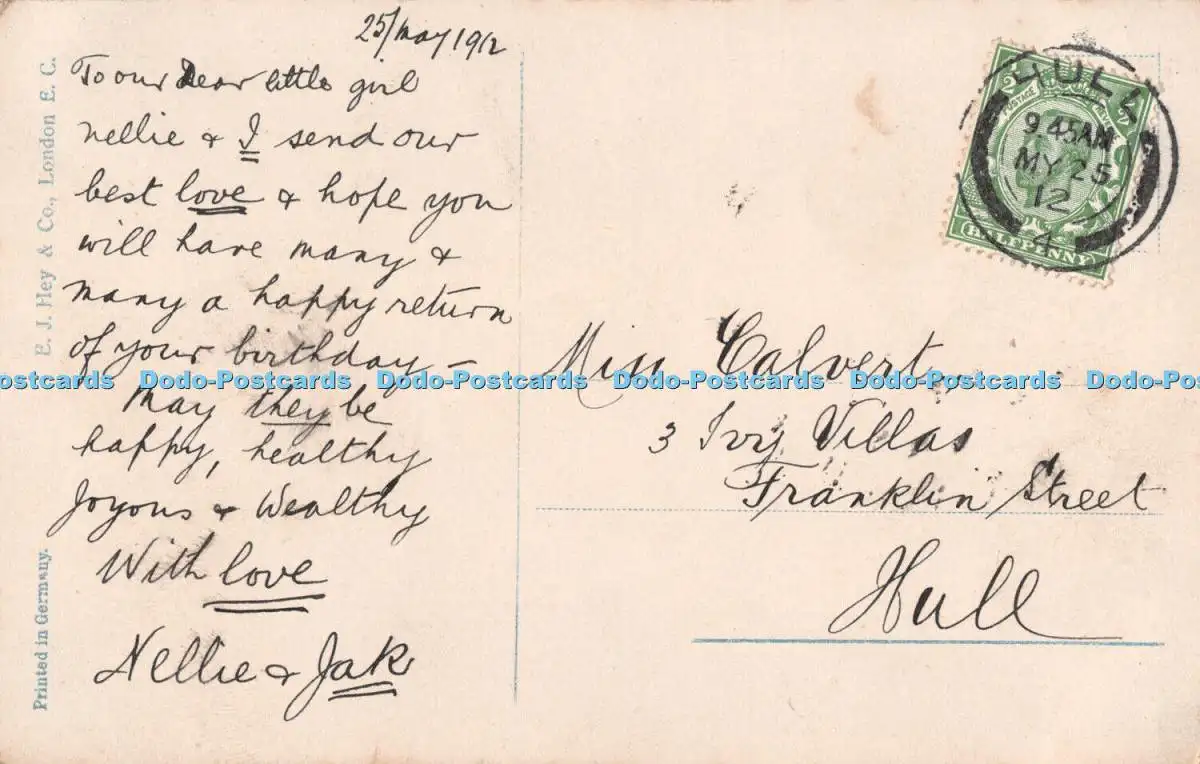 25/May 1912
To our Dear little girl
Nellie & I send our
best love & hope you
will have many &
many a happy return
of your birthday —
May they be
happy, healthy
Joyous & Wealthy
With love
Nellie & Jak
E. J. Hey & Co., London E. C.
Printed in Germany.
HULL
9.45AM
MY 25
12
4
POSTAGE
HALFPENNY
Miss Calvert
3 Ivy Villas
Franklin Street
Hull
Dodo-Postcards Dodo-Postcards Dodo-Postcards Dodo-Postcards Dodo-Postcards